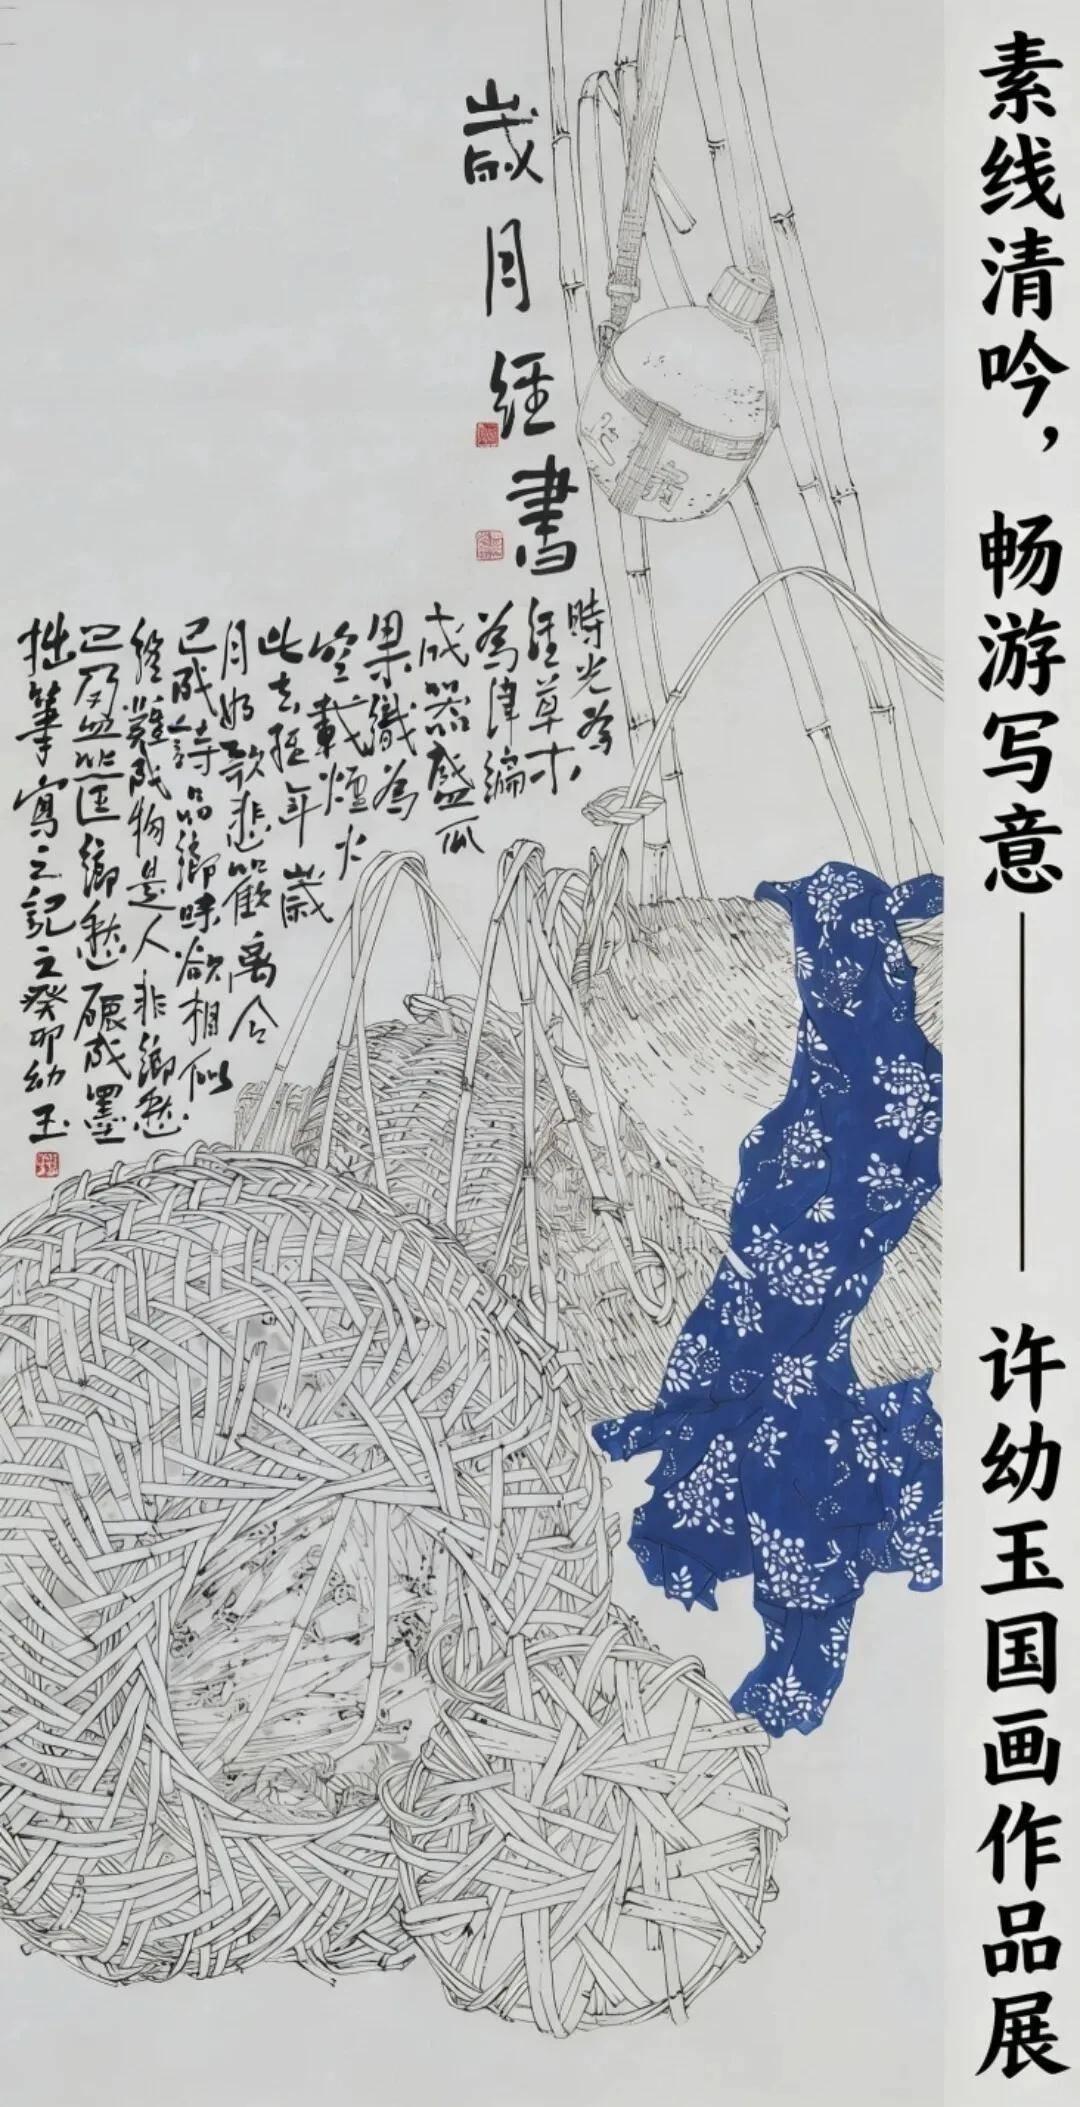 素线清吟，畅游写意——许幼玉国画作品展
歲月經書
時光為
經草木
為津編
成器盛瓜
果織為
空載煙火
此去經年歲
月如歌悲歡離合
已成詩品鄉味欲相似
終難成物是人非鄉愁
已乃筐鄉愁碾成墨
拙筆寫之記之癸卯幼玉